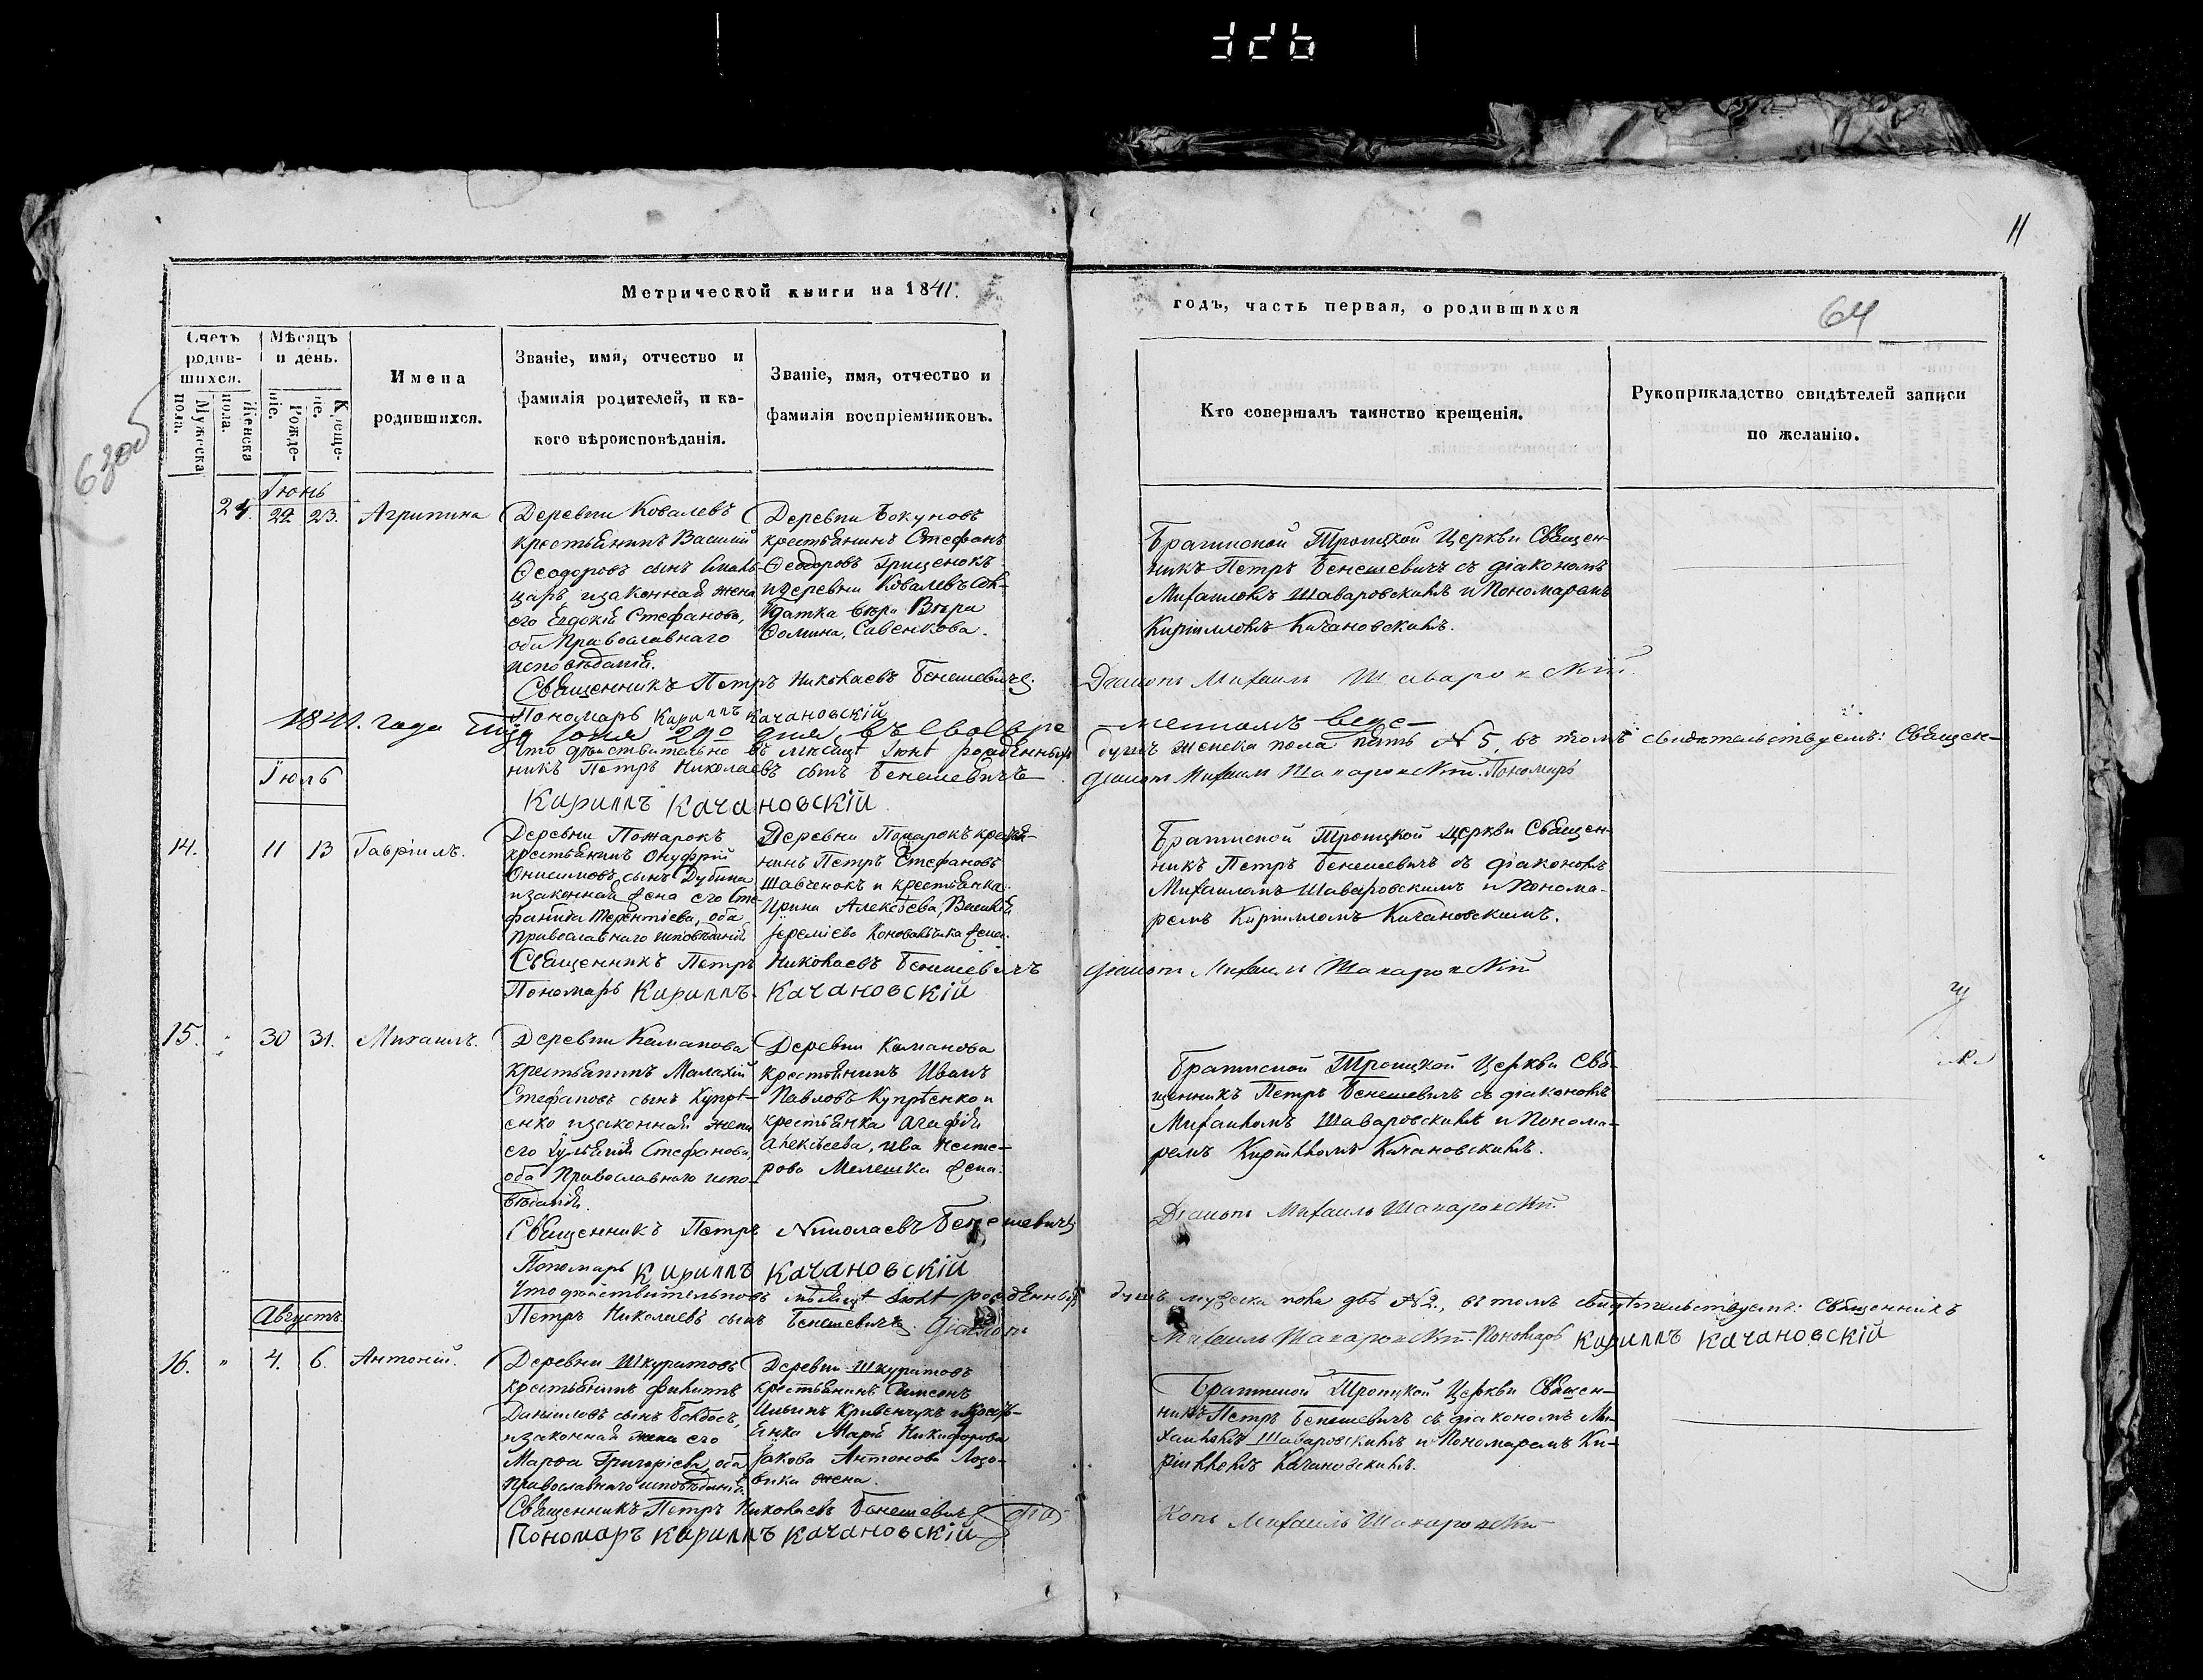 11
Метрической книги на 1841.
годъ, часть первая, о родившихся
64
63об
Счетъ родив-шихся.
Мужеска пола.
Женска пола.
Мѣсяцъ и день.
Рожде-ніе.
Креще-ніе.
Имена родившихся.
Званіе, имя, отчество и
фамилія родителей, и ка-
кого вѣроисповѣданія.
Званіе, имя, отчество и
фамилія воспріемниковъ.
Кто совершалъ таинство крещенія.
Рукоприкладство свидѣтелей записи
по желанію.
Іюнь
24. 22 23. Агрипина
Деревни Ковалевъ
крестьянинъ Василій
Ѳеодоровъ сынъ
царъ изаконная жена
его Евдокія Стефанова,
оба Православнаго
исповѣданія.
Деревни Бокуновъ
крестьянинъ Стефанъ
Ѳеодоровъ Грищенокъ
идеревни Ковалевъ
Вѣра
Ѳомина, Савенкова.
Брагинской Троицкой Церкви Священ-
никъ Петръ Бенешевичъ съ діакономъ
Михаиломъ Шаваровскимъ и Пономаремъ
Кирилломъ Качановскимъ.
Священникъ Петръ Николаевъ Бенешевичъ.
Діаконъ Михаилъ Шаваровскій
Пономарь Кириллъ Качановскій
1841. года Іюля 29о дня въ
Что дѣйствительно въ мѣсяцѣ Іюнѣ рожденныхъ
душъ женска пола пять № 5, въ томъ свидѣтельствуемъ: Священ-
никъ Петръ Николаевъ сынъ Бенешевичъ
Діаконъ Михаилъ Шаваровскій. Пономарь
Кириллъ Качановскій
Іюль
14. 11 13 Гавріилъ.
Деревни Пожарокъ
крестьянинъ Онуфрій
Онисимовъ сынъ Дубина
изаконная жена его Сте-
фанида Терентіева, оба
Православнаго исповѣданія
Деревни Пожарокъ крестья-
нинъ Петръ Стефановъ
Шавченокъ и крестьянка
Ирина Алексѣева, Василія
Іереміева Коновальчика жена.
Брагинской Троицкой Церкви Священ-
никъ Петръ Бенешевичъ съ діакономъ
Михаиломъ Шаваровскимъ и Понома-
ремъ Кирилломъ Качановскимъ.
Священникъ Петръ Николаевъ Бенешевичъ
Діаконъ Михаилъ Шаваровскій
Пономарь Кириллъ Качановскій
15. 30 31. Михаилъ.
Деревни Каманова
крестьянинъ Малахій
Стефановъ сынъ Купрѣ-
енко изаконная жена
его Іуліанія Стефанова,
оба Православнаго испо-
вѣданія.
Деревни Каманова
крестьянинъ Иванъ
Павловъ Купрѣенко и
крестьянка Агафія
Алексѣева, Ива Несте-
рова Мелешка жена.
Брагинской Троицкой Церкви Свя-
щенникъ Петръ Бенешевичъ съ діакономъ
Михаиломъ Шаваровскимъ и Понома-
ремъ Кирилломъ Качановскимъ.
Священникъ Петръ Николаевъ Бенешевичъ
Діаконъ Михаилъ Шаваровскій.
Пономарь Кириллъ Качановскій
Что дѣйствительно въ мѣсяцѣ Іюлѣ рожденныхъ
душъ мужеска пола двѣ № 2., въ томъ свидѣтельствуемъ: Священникъ
Петръ Николаевъ сынъ Бенешевичъ. Діаконъ
Михаилъ Шаваровскій. Пономарь Кириллъ Качановскій
Августъ
16. " 4. 6. Антоній.
Деревни Шкуратовъ
крестьянинъ Филиппъ
Даниловъ сынъ
изаконная жена его
Марѳа Григоріева, оба
Православнаго исповѣданія.
Деревни Шкуратовъ
крестьянинъ Симеонъ
Ильинъ Кривенчукъ икресть-
янка Марія Никифорова
Іакова Антонова Лозо-
вика жена.
Брагинской Троицкой Церкви Священ-
никъ Петръ Бенешевичъ съ діакономъ Ми-
хаиломъ Шаваровскимъ и Пономаремъ Ки-
рилломъ Качановскимъ.
Священникъ Петръ Николаевъ Бенешевичъ Діа-
конъ Михаилъ Шаваровскій
Пономаръ Кириллъ Качановскій